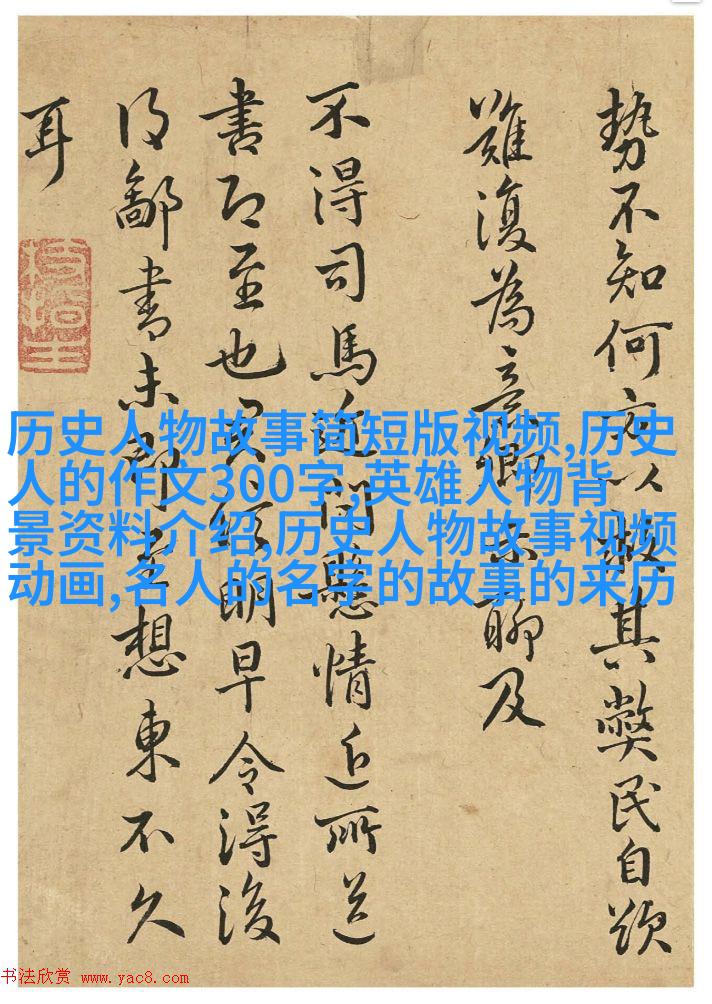 勢不知何以救其弊民自欲
難復為聊及
不得司馬近問懸情近所送
書即至也須明早令得後
得鄙書未即至想東不久
耳
历史人物故事简短版视频,历史
人的作文300字,英雄人物背
景资料介绍,历史人物故事视频
动画,名人的名字的故事的来历
书法欣赏 www.yac8.com